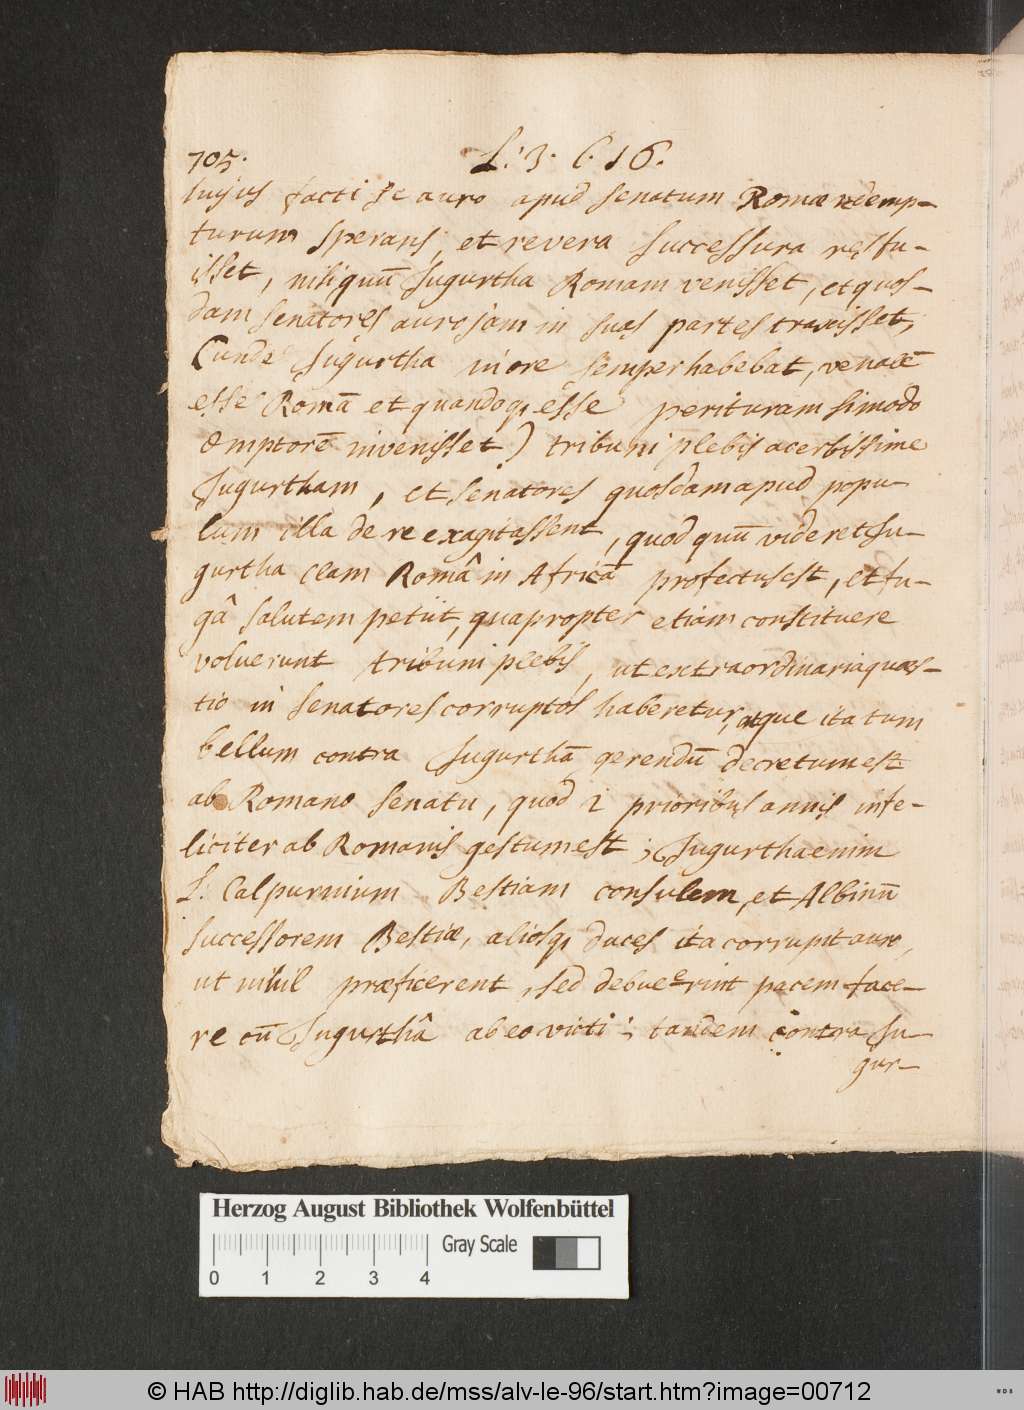 705.
L: 3. C. 16.
huj̄us facti se auro apud senatum Romæ redemp-
turum sperans, et revera successura res fu-
isset, nisi quum̄ Jugurtha Romam venisset, et quos-
dam senatores auro jam in suas partes traxisset,
(unde Jugurtha in ore semper habebat, venalē
esse Romā et quandoq; esse perituram si modo
emptorē invenisset) tribuni plebis acerbissime
Jugurtham, et senatores quosdam apud popu-
lum illa de re exagitassent, quod quū videret Ju-
gurtha clam Româ in Africā profectus est, et fu-
gâ salutem petiit, quapropter etiam constituere
voluerunt tribuni plebis, ut extraordinaria quæs-
tio in senatores corruptos haberetur, atque ita tum
bellum contra Jugurthā gerendū decretum est
ab Romano senatu, quod 2 prioribus annis infe-
liciter ab Romanis gestum est; Jugurtha enim
L: Calpurnium Bestiam consulem, et Albinū
successorem Bestiæ, aliosq; duces ita corrupit auro,
ut nihil præficerent, sed debuerint pacem face-
re cū Jugurthâ ab eo victi; tandem contra Ju-
gur-
Herzog August Bibliothek Wolfenbüttel
Gray Scale
0 1 2 3 4
© HAB http://diglib.hab.de/mss/alv-le-96/start.htm?image=00712